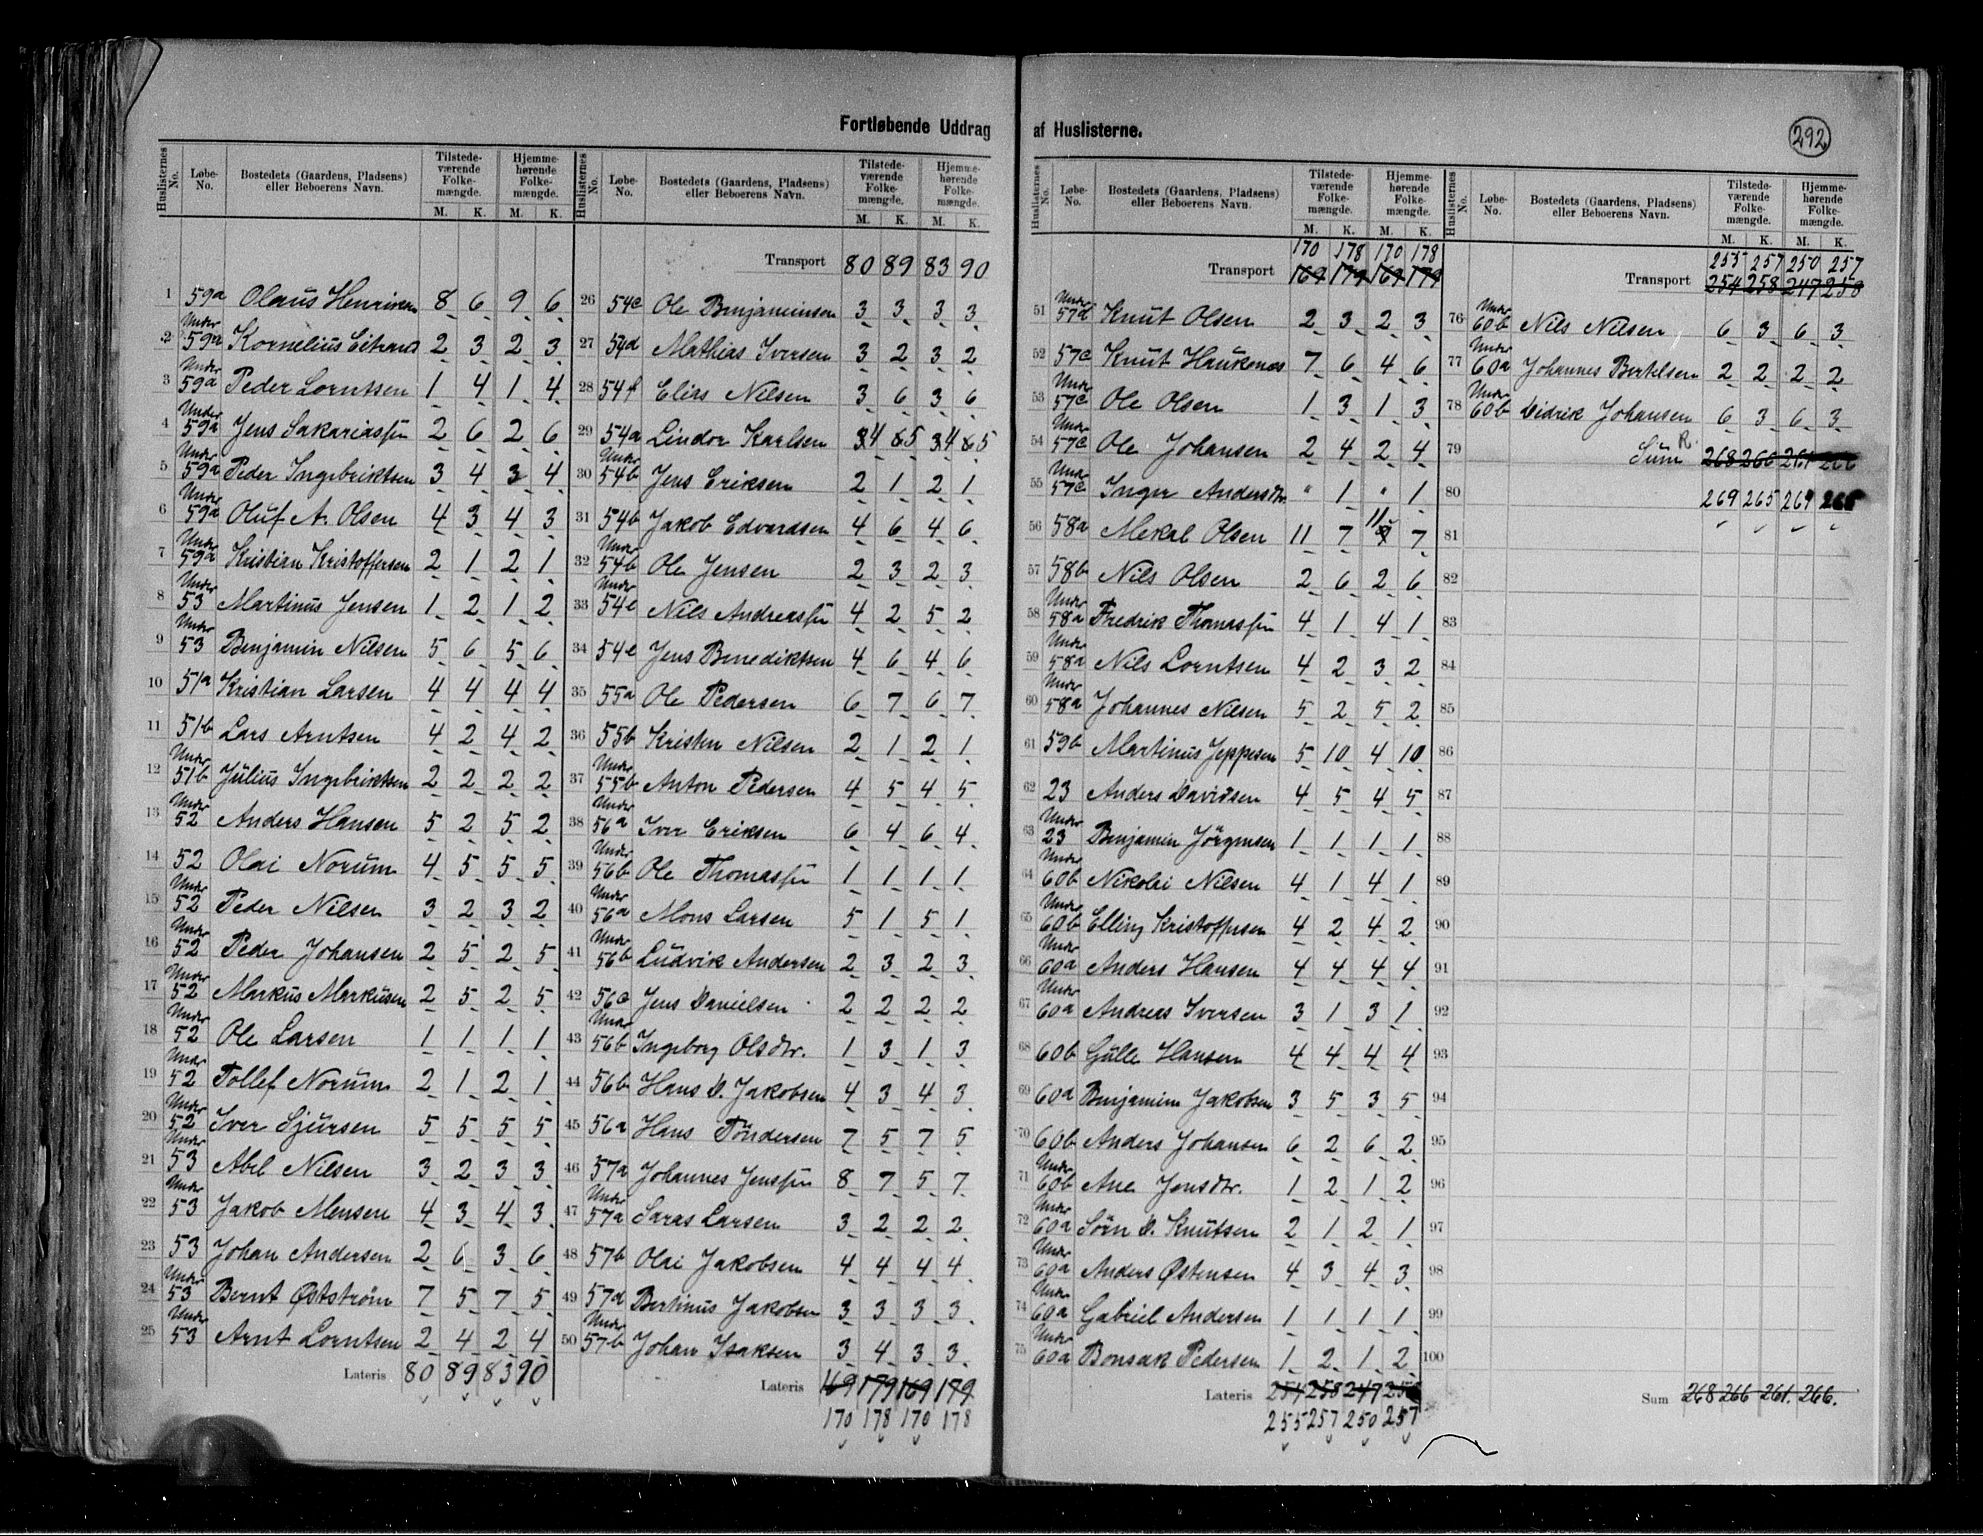 Fortløbende Uddrag af Huslisterne.
292
Huslisternes No. Løbe-No. Bostedets (Gaardens, Pladsens) eller Beboerens Navn. Tilstedeværende Folkemængde. M. K. Hjemmehørende Folkemængde. M. K.
1 59a Olaus Henriksen 8 6 9 6
2 Under 59a Kornelius 2 3 2 3
3 Under 59a Peder Lorntsen 1 4 1 4
4 Under 59a Jens Sakariassen 2 6 2 6
5 Under 59a Peder Ingebriktsen 3 4 3 4
6 Under 59a Oluf A. Olsen 4 3 4 3
7 Under 59a Kristian Kristoffersen 2 1 2 1
8 Under 53 Martinus Jensen 1 2 1 2
9 Under 53 Benjamin Nilsen 5 6 5 6
10 51a Kristian Larsen 4 4 4 4
11 51b Lars Arntsen 4 2 4 2
12 Under 51b Julius Ingebriktsen 2 2 2 2
13 Under 52 Anders Hansen 5 2 5 2
14 52 Olai Norum 4 5 5 5
15 Under 52 Peder Nilsen 3 2 3 2
16 Under 52 Peder Johansen 2 5 2 5
17 Under 52 Markus Markusen 2 5 2 5
18 Under 52 Ole Larsen 1 1 1 1
19 Under 52 Tollef Norum 2 1 2 1
20 Under 52 Iver Sjursen 5 5 5 5
21 Under 53 Abel Nilsen 3 2 3 3
22 Under 53 Jakob Mensen 4 3 4 3
23 53 Johan Andersen 2 6 3 6
24 Under 53 Bernt Østström 7 5 7 5
25 Under 53 Arnt Lorntsen 2 4 2 4
Lateris 80 89 83 90
Huslisternes No. Løbe-No. Bostedets (Gaardens, Pladsens) eller Beboerens Navn. Tilstedeværende Folkemængde. M. K. Hjemmehørende Folkemængde. M. K.
Transport 80 89 83 90
26 54c Ole Benjaminsen 3 3 3 3
27 54d Mathias Iversen 3 2 3 2
28 54f Elias Nilsen 3 6 3 6
29 54a Lindor Karlsen 4 5 4 5
30 Under 54b Jens Eriksen 2 1 2 1
31 54b Jakob Edvardsen 4 6 4 6
32 Under 54b Ole Jensen 2 3 2 3
33 Under 54e Nils Andreassen 4 2 5 2
34 54e Jens Benediktsen 4 6 4 6
35 55a Ole Pedersen 6 7 6 7
36 55b Kristen Nilsen 2 1 2 1
37 Under 55b Anton Pedersen 4 5 4 5
38 Under 56a Iver Eriksen 6 4 6 4
39 Under 56b Ole Thomassen 1 1 1 1
40 Under 56a Mons Larsen 5 1 5 1
41 Under 56b Ludvik Andersen 2 3 2 3
42 56c Jens Danielsen 2 2 2 2
43 Under 56b Ingeborg Olsdtr. 1 3 1 3
44 56b Hans D. Jakobsen 4 3 4 3
45 56a Hans Töndersen 7 5 7 5
46 57a Johannes Jenssen 8 7 5 7
47 Under 57a Saras Larsen 3 2 2 2
48 57b Olai Jakobsen 4 4 4 4
49 57d Bertinus Jakobsen 3 3 3 3
50 Under 57b Johan Isaksen 3 4 3 3
Lateris 169 179 169 179
170 178 170 178
Huslisternes No. Løbe-No. Bostedets (Gaardens, Pladsens) eller Beboerens Navn. Tilstedeværende Folkemængde. M. K. Hjemmehørende Folkemængde. M. K.
170 178 170 178
Transport 169 179 169 179
51 Under 57d Knut Olsen 2 3 2 3
52 57c Knut Haukenæs 7 6 4 6
53 Under 57c Ole Olsen 1 3 1 3
54 Under 57c Ole Johansen 2 4 2 4
55 Under 57c Inger Andersdtr. " 1 " 1
56 58a Mekal Olsen 11 7 11 7
57 58b Nils Olsen 2 6 2 6
58 Under 58a Fredrik Thomassen 4 1 4 1
59 Under 58a Nils Lorntsen 4 2 3 2
60 Under 58a Johannes Nilsen 5 2 5 2
61 59b Martinus Jeppesen 5 10 4 10
62 23 Anders Davidsen 4 5 4 5
63 Under 23 Benjamin Jörgensen 1 1 1 1
64 Under 60b Nikolai Nilsen 4 1 4 1
65 Under 60b Elling Kristoffersen 4 2 4 2
66 Under 60a Anders Hansen 4 4 4 4
67 Under 60a Andreas Iversen 3 1 3 1
68 60b Gulle Hansen 4 4 4 4
69 60a Benjamin Jakobsen 3 5 3 5
70 60b Anders Johansen 6 2 6 2
71 Under 60b Ane Jensdtr. 1 2 1 2
72 Under 60a Sörn D. Knutsen 2 1 2 1
73 Under 60a Anders Østensen 4 3 4 3
74 Under 60a Gabriel Andersen 1 1 1 1
75 Under 60a Bonsak Pedersen 1 2 1 2
Lateris 254 258 247 258
255 257 250 257
Huslisternes No. Løbe-No. Bostedets (Gaardens, Pladsens) eller Beboerens Navn. Tilstedeværende Folkemængde. M. K. Hjemmehørende Folkemængde. M. K.
255 257 250 257
Transport 254 258 247 258
76 Under 60b Nils Nilsen 6 3 6 3
77 Under 60a Johannes Bertelsen 2 2 2 2
78 Under 60b Didrik Johansen 6 3 6 3
R.
79 Sum 268 266 261 266
80 269 265 264 265
81
82
83
84
85
86
87
88
89
90
91
92
93
94
95
96
97
98
99
100
Sum 268 266 261. 266.